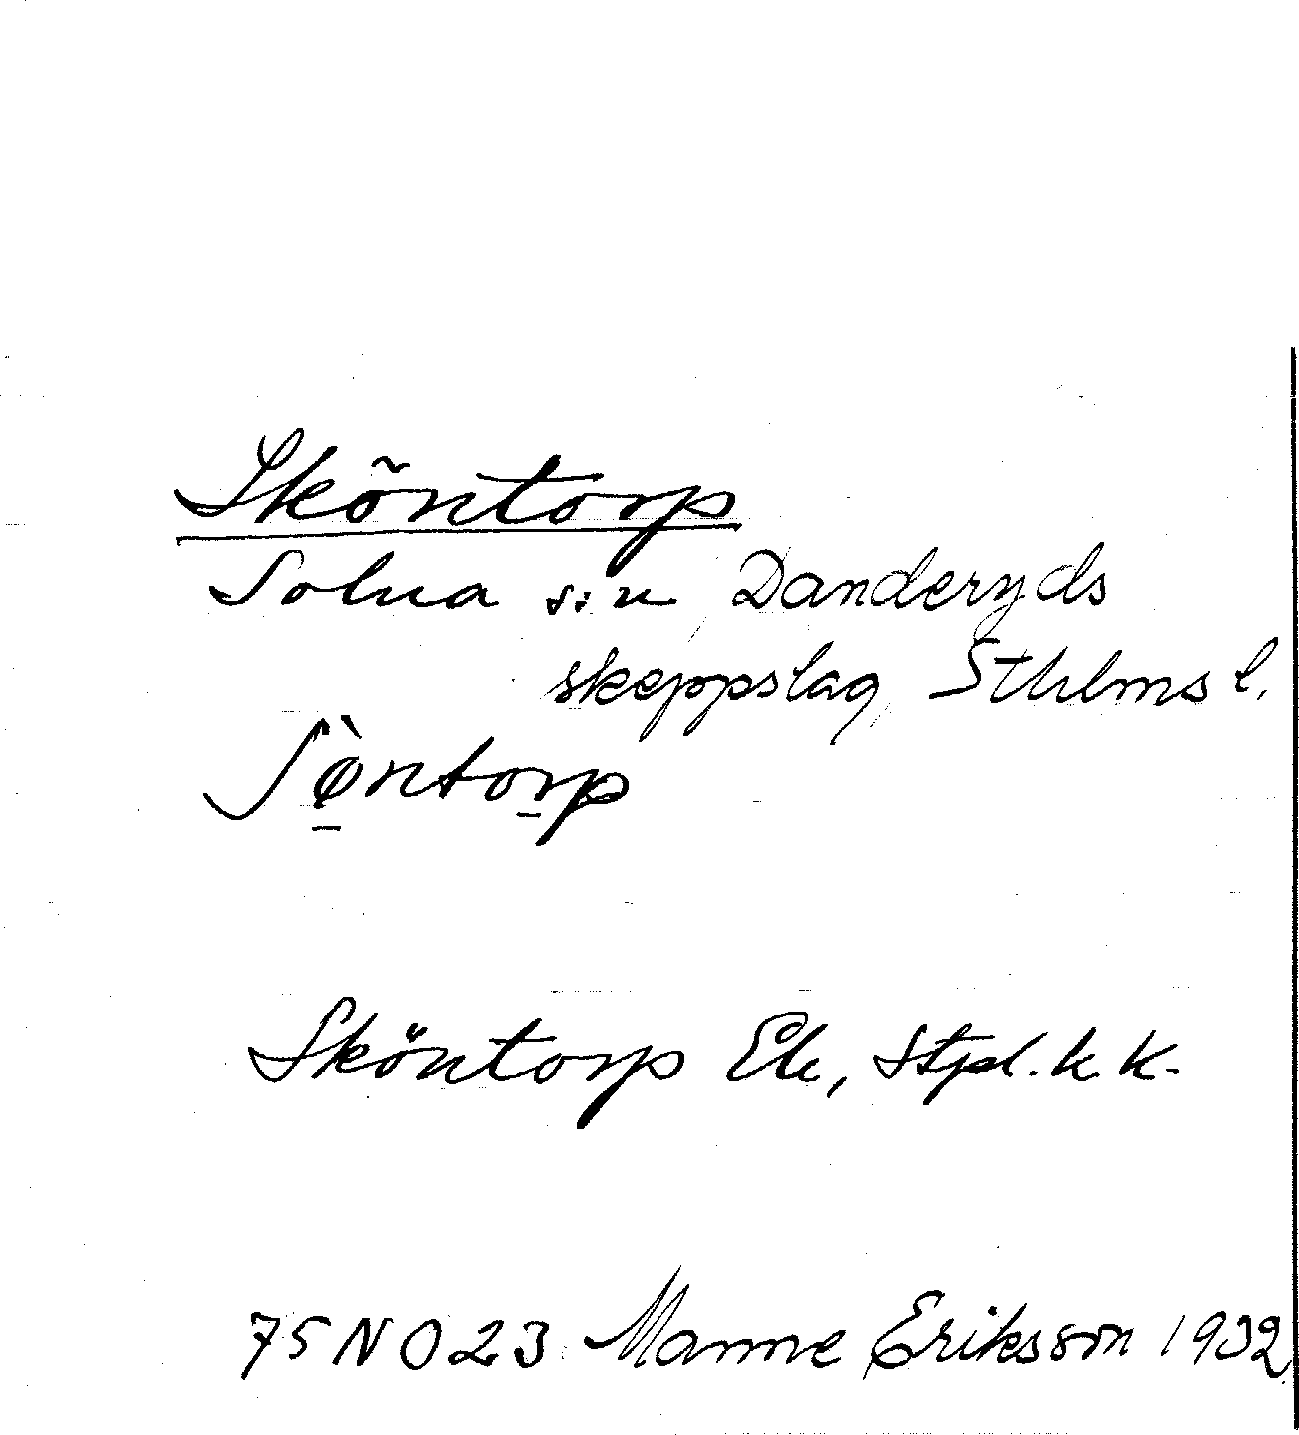 Sköntorp
Solna s:n Danderyds
skeppslag, Sthlms l.
ʃø̀ntorp
Sköntorp Ek, Stpl. k k.
75 NO 23 Manne Eriksson 1932